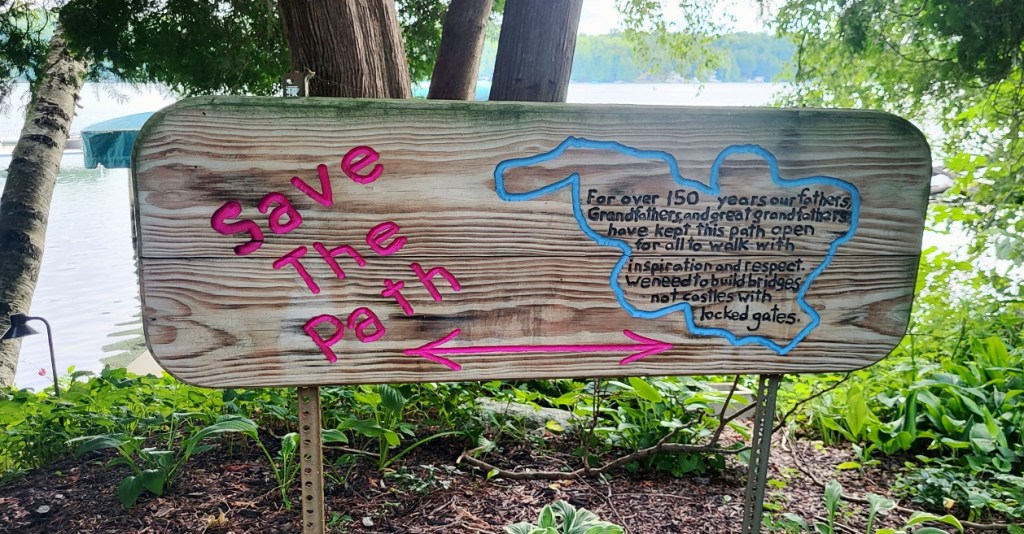 Save
The
Path
For over 150 years our fathers,
Grandfathers, and great grandfathers
have kept this path open
for all to walk with
inspiration and respect.
We need to build bridges
not castles with
locked gates.